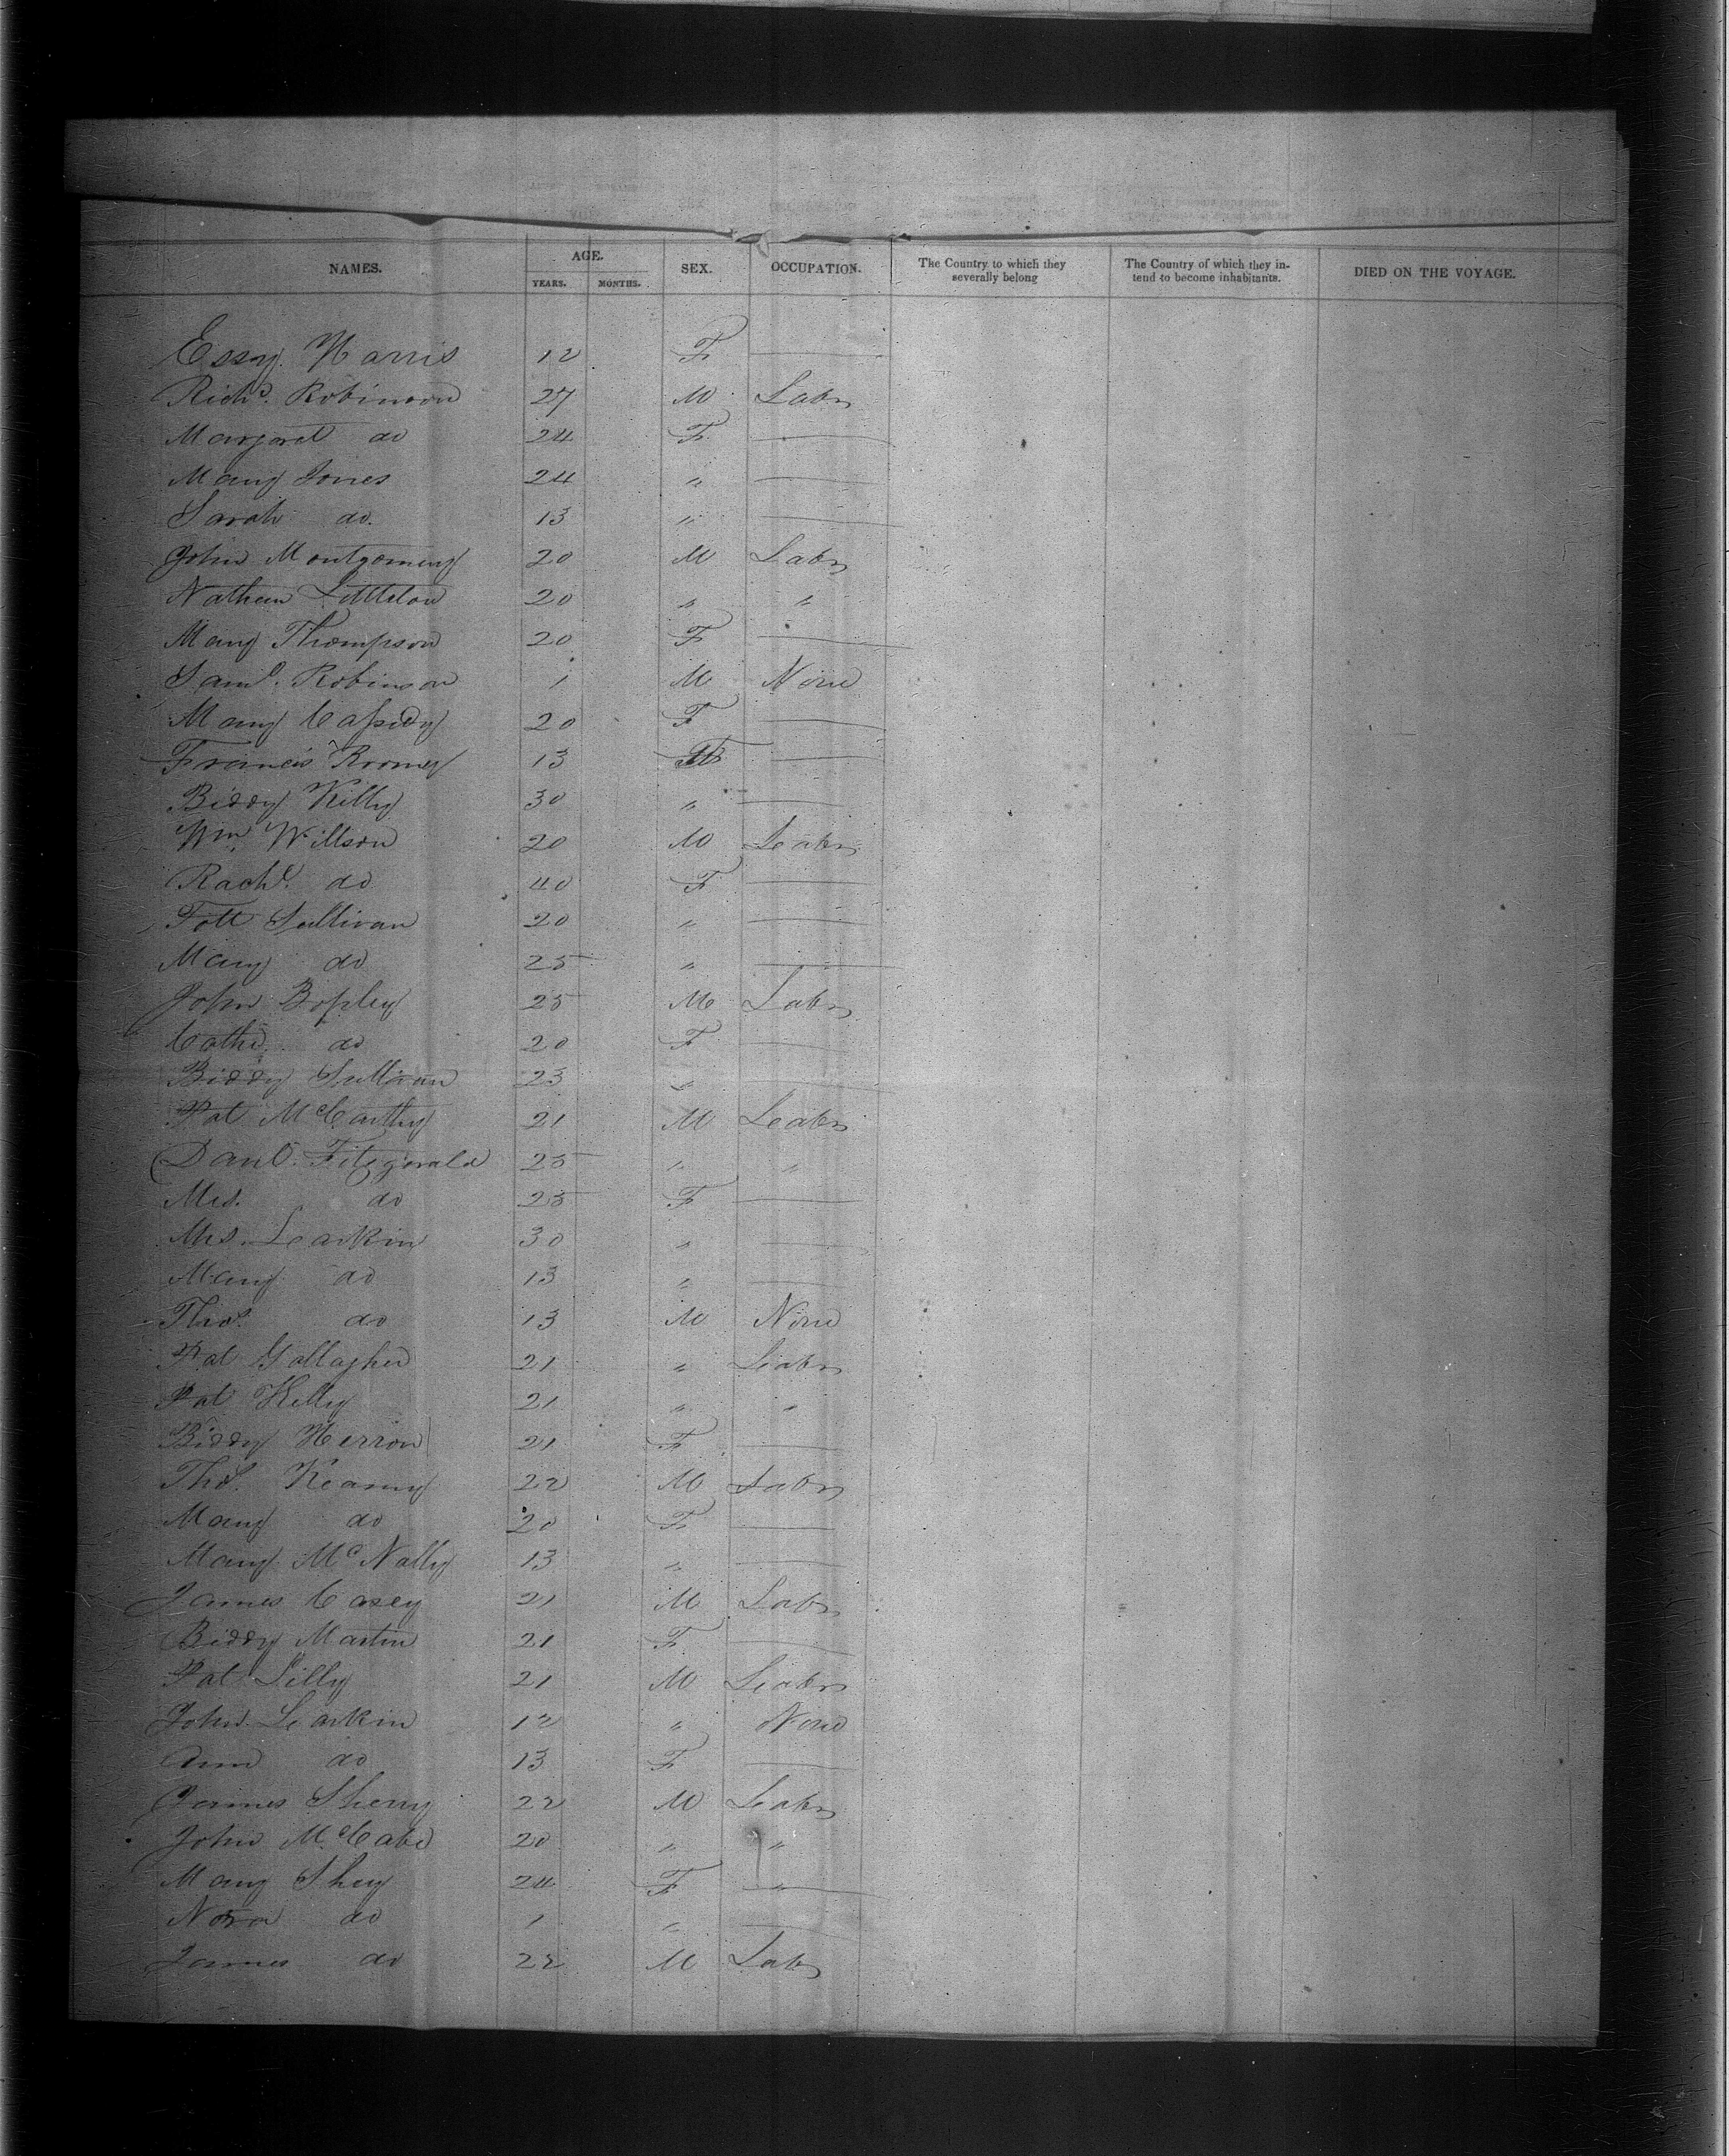 NAMES. AGE. YEARS. MONTHS. SEX. OCCUPATION. The Country to which they severally belong The Country of which they intend to become inhabitants. DIED ON THE VOYAGE.
Essy Harris 12 F —
Richd. Robinson 27 M Labr
Margaret do 24 F —
Mary Jones 24 " —
Sarah do. 13 " —
John Montgomery 20 M Labr
Nathan Littleton 20 " "
Mary Thompson 20 F —
Saml. Robinson 1 M None
Mary Cassidy 20 F —
Francis Rooney 13 —
Biddy Kelly 30 " —
Wm. Willson 20 M Labr
Rachl. do 40 F —
Sullivan 20 " —
Mary do 25 " —
John 25 M Labr
Cathe. do 20 F —
Biddy Sullivan 23 " —
Pat McCarthy 21 M Labr
Danl. Fitzgerald 25 " "
Mrs. do 25 F —
Mrs. Larkin 30 " —
Mary do 13 " —
Thos. do 13 M None
Pat Gallagher 21 " Labr
Pat Kelly 21 " "
Biddy Herron 21 F —
Thos. Kearny 22 M Labr
Mary do 20 F —
Mary McNally 13 " —
James Casey 21 M Labr
Biddy Martin 21 F —
Pat Lilly 21 M Labr
John Larkin 12 " None
Ann do 13 F —
James Sherry 22 M Labr
John McCabe 20 " "
Mary Shey 24 F —
Nora do 1 " —
James do 22 M Labr